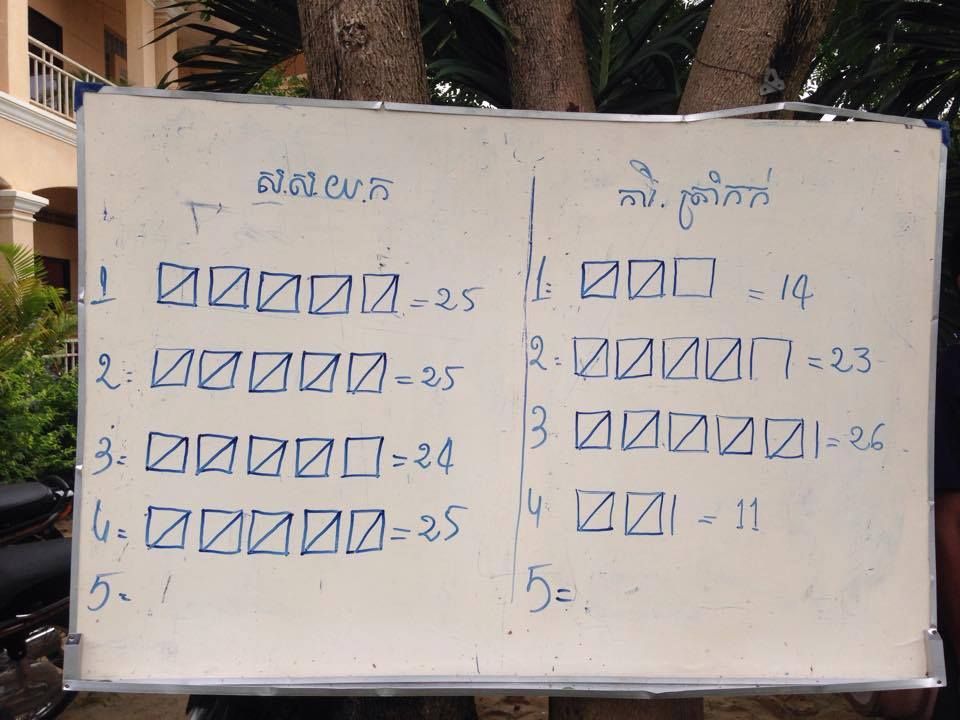 ស.ស.យ.ក
1 = 25
2= = 25
3= = 24
4= = 25
5=
ការិ. ត្រាំកក់
1= = 14
2= = 23
3 = 26
4 = 11
5=